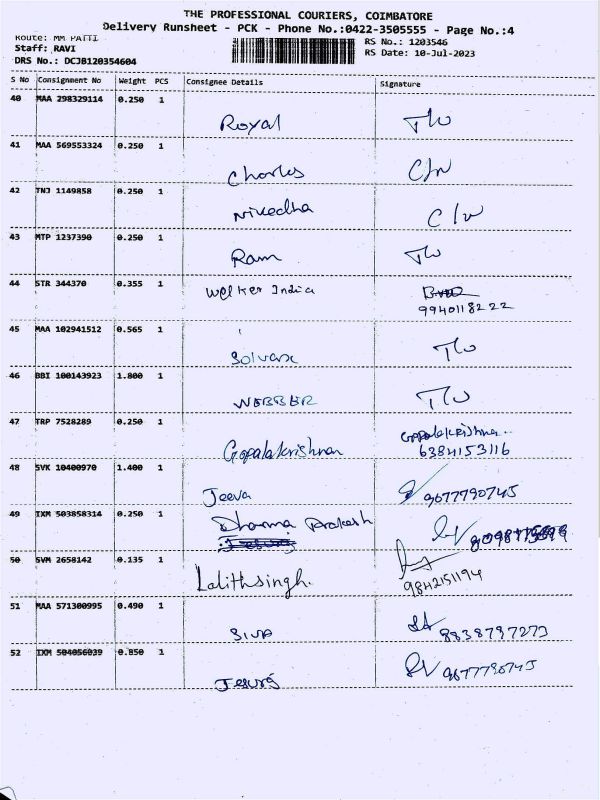 THE PROFESSIONAL COURIERS, COIMBATORE
Delivery Runsheet - PCK - Phone No.:0422-3505555 - Page No.:4
Route: MM PATTI
RS No.: 1203546
Staff: RAVI
RS Date: 10-Jul-2023
DRS No.: DCJB120354604
S No Consignment No Weight PCS Consignee Details Signature
40 MAA 298329114 0.250 1
Royal
41 MAA 569553324 0.250 1
Charles C/w
42 TNJ 1149858 0.250 1
Nivedha C/w
43 MTP 1237390 0.250 1
Ram
44 STR 344370 0.355 1
Welker India
9940118222
45 MAA 102941512 0.565 1
46 BBI 100143923 1.800 1
WEBBER
47 TRP 7528289 0.250 1
Gopalakrishnan Gopalakrishna
6384153116
48 SVK 10400970 1.400 1
Jeeva 9677790745
49 IXM 503858314 0.250 1
Dharma Prakash
50 SVM 2658142 0.135 1
Lalithsingh. 9842151194
51 MAA 571300995 0.490 1
SIVA 8838797273
52 IXM 504056039 0.850 1
Jesuraj 9677790745